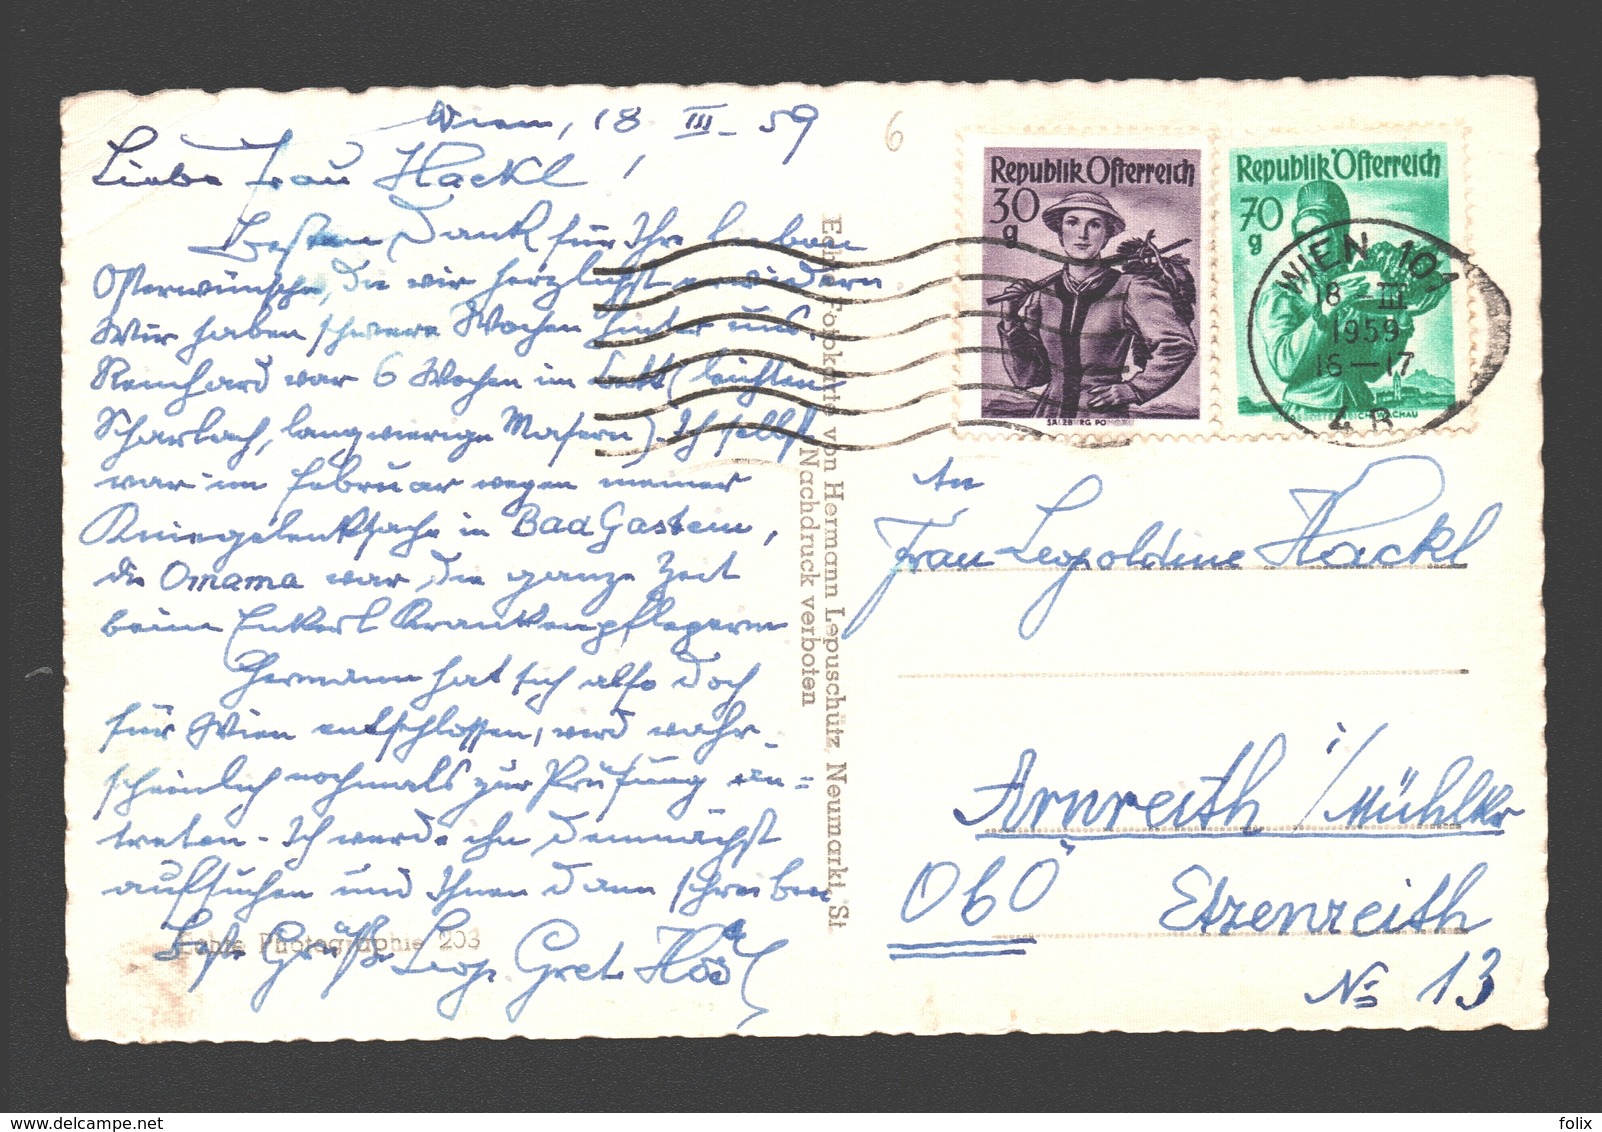 Wien, 18 III 59
Liebe Frau Hackl!
Besten Dank für Ihre lieben
Osterwünsche, die wir herzlichst erwidern.
Wir haben schwere Wochen hinter uns.
Reinhard war 6 Wochen im Bett (leichten
Scharlach, langwierige Masern). Ich selbst
war im Februar wegen meiner
Kniegelenksache in Bad Gastein,
die Omama war die ganze Zeit
beim Enkerl Krankenpflegerin
Hermann hat sich also doch
für Wien entschlossen, wird wahr-
scheinlich nochmals zur Prüfung an=
treten. Ich werde ihn demnächst
aufsuchen und Ihnen dann schreiben
Echte Photographie 203
Beste Grüße Gret
Echte Fotokarte von Hermann Lepuschütz, Neumarkt, St
Nachdruck verboten
6
Republik Österreich
30
g
SALZBURG PO
Republik Österreich
70
g
WACHAU
WIEN 101
18 -III
1959
16-17
4 B
An
Frau Leopoldine Hackl
Arnreith i/Mühlkr
ObÖ Etzenreith
No 13
folix